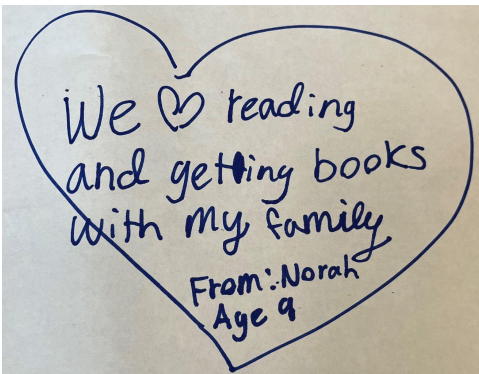 We ♡ reading
and getting books
with my family
From: Norah
Age 9